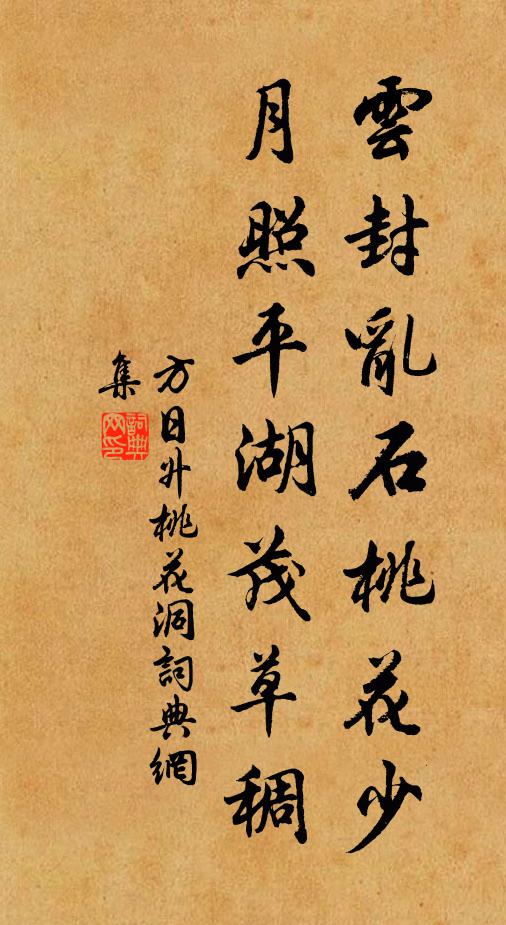 雲封亂石桃花少
月照平湖茂草稠
方日升桃花洞詞典網
集
詞典
网印